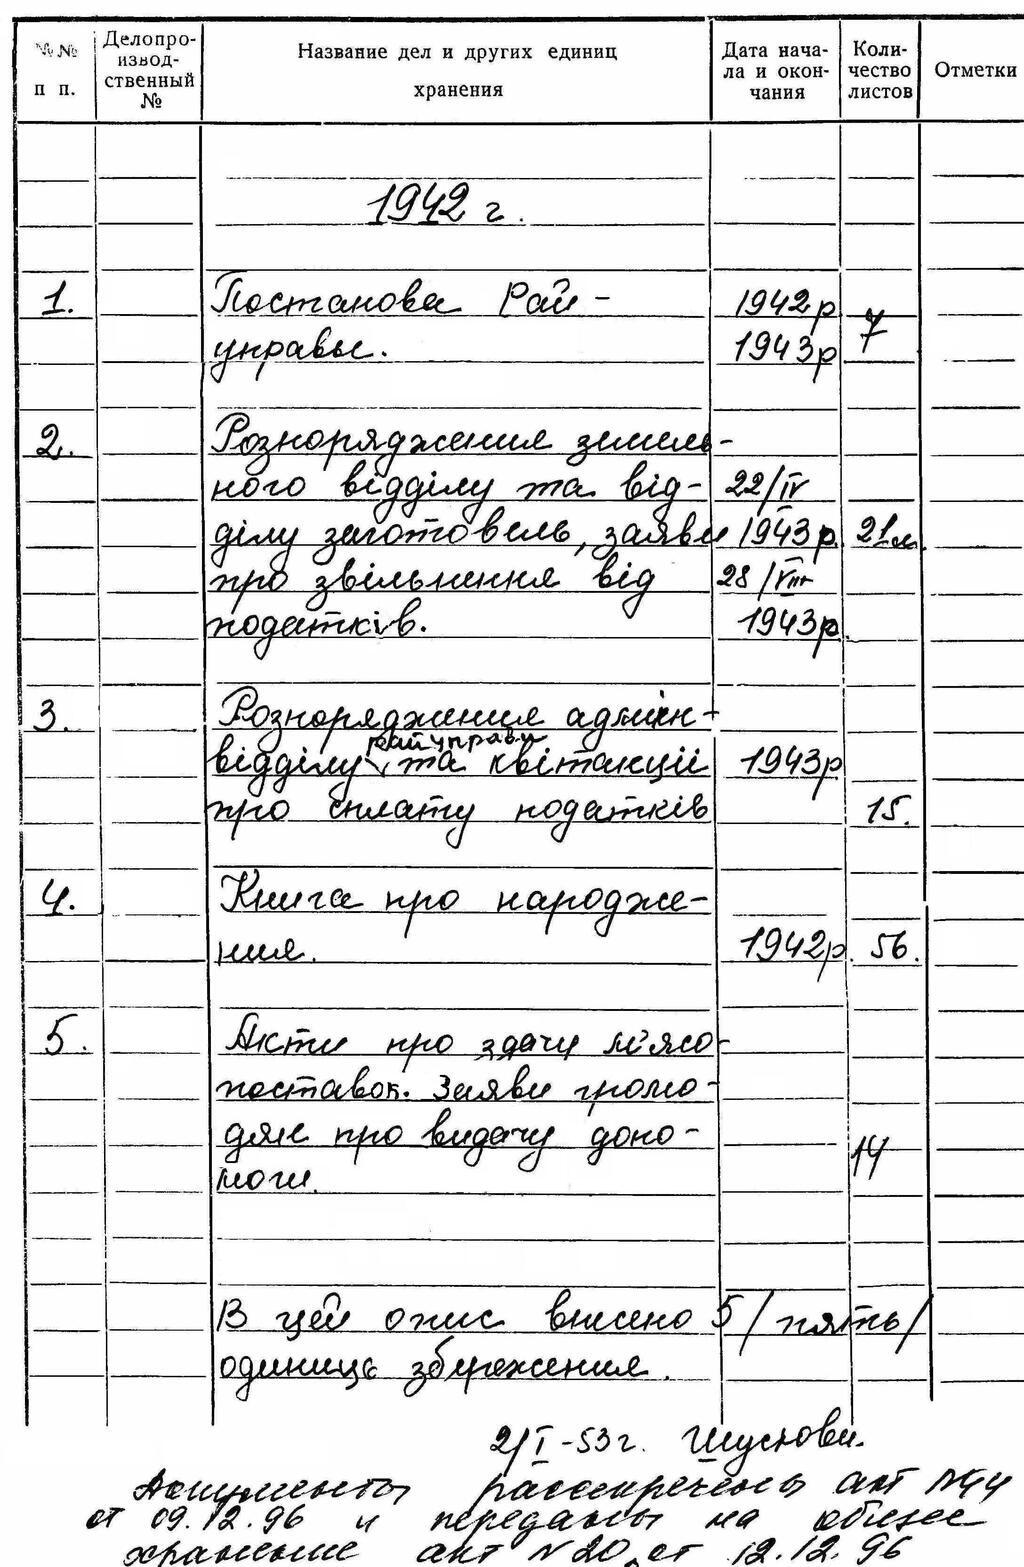 №№ п п.
Делопро-изводственный №
Название дел и других единиц хранения
Дата нача-ла и окон-чания
Коли-чество листов
Отметки
1942 г.
1. Постанова Рай- 1942р
управы. 1943р 7
2. Розпорядження земель-
ного відділу та від- 22/IV
ділу заготовель, заяви 1943р. 21л.
про звільнення від 28/VIII
податків. 1943р.
3. Розпорядження адмін-
райуправи
відділу та квітанції 1943р
про сплату податків 15.
4. Книга про народже-
ння. 1942р. 56.
5. Акти про здачу м'ясо-
поставок. Заяви грома-
дян про видачу допо- 14
моги.
В цей опис внесено 5 / пять/
одиниць збереження.
2/I-53г.
Документы рассекречены акт №44
от 09.12.96 и переданы на общее
хранение акт №20 от 12.12.96